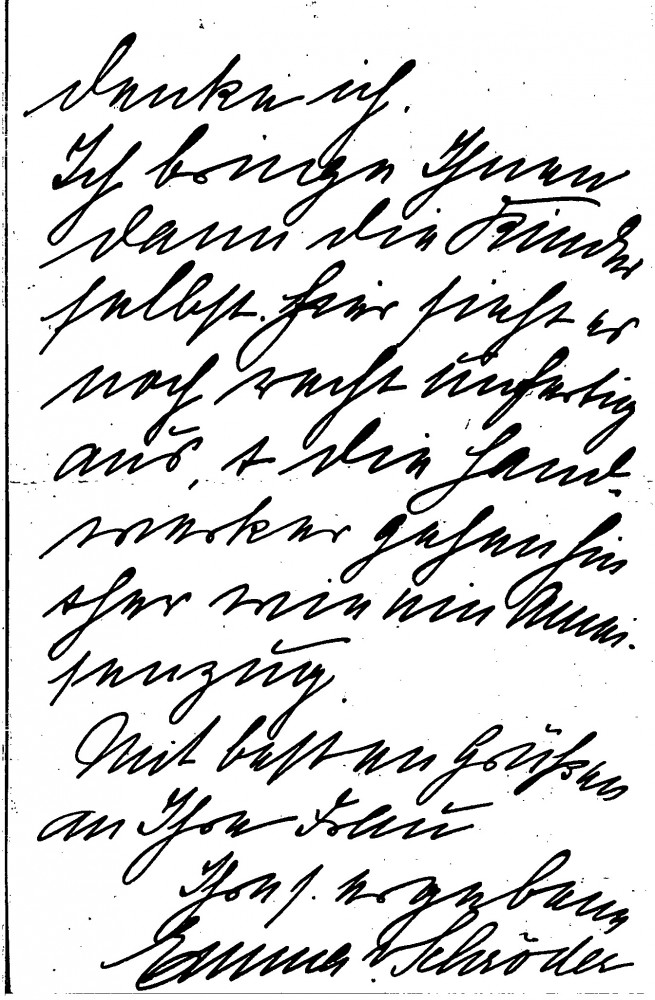 denke ich.
Ich bringe Ihnen
dann die Kinder
selbst. Hier sieht es
noch recht unfertig
aus, + die Hand-
werker gehen hin
+ her wie ein Amei-
senzug.
Mit besten Grüßen
an Ihre Frau
Ihre s. ergebene
Emma v. Schröder